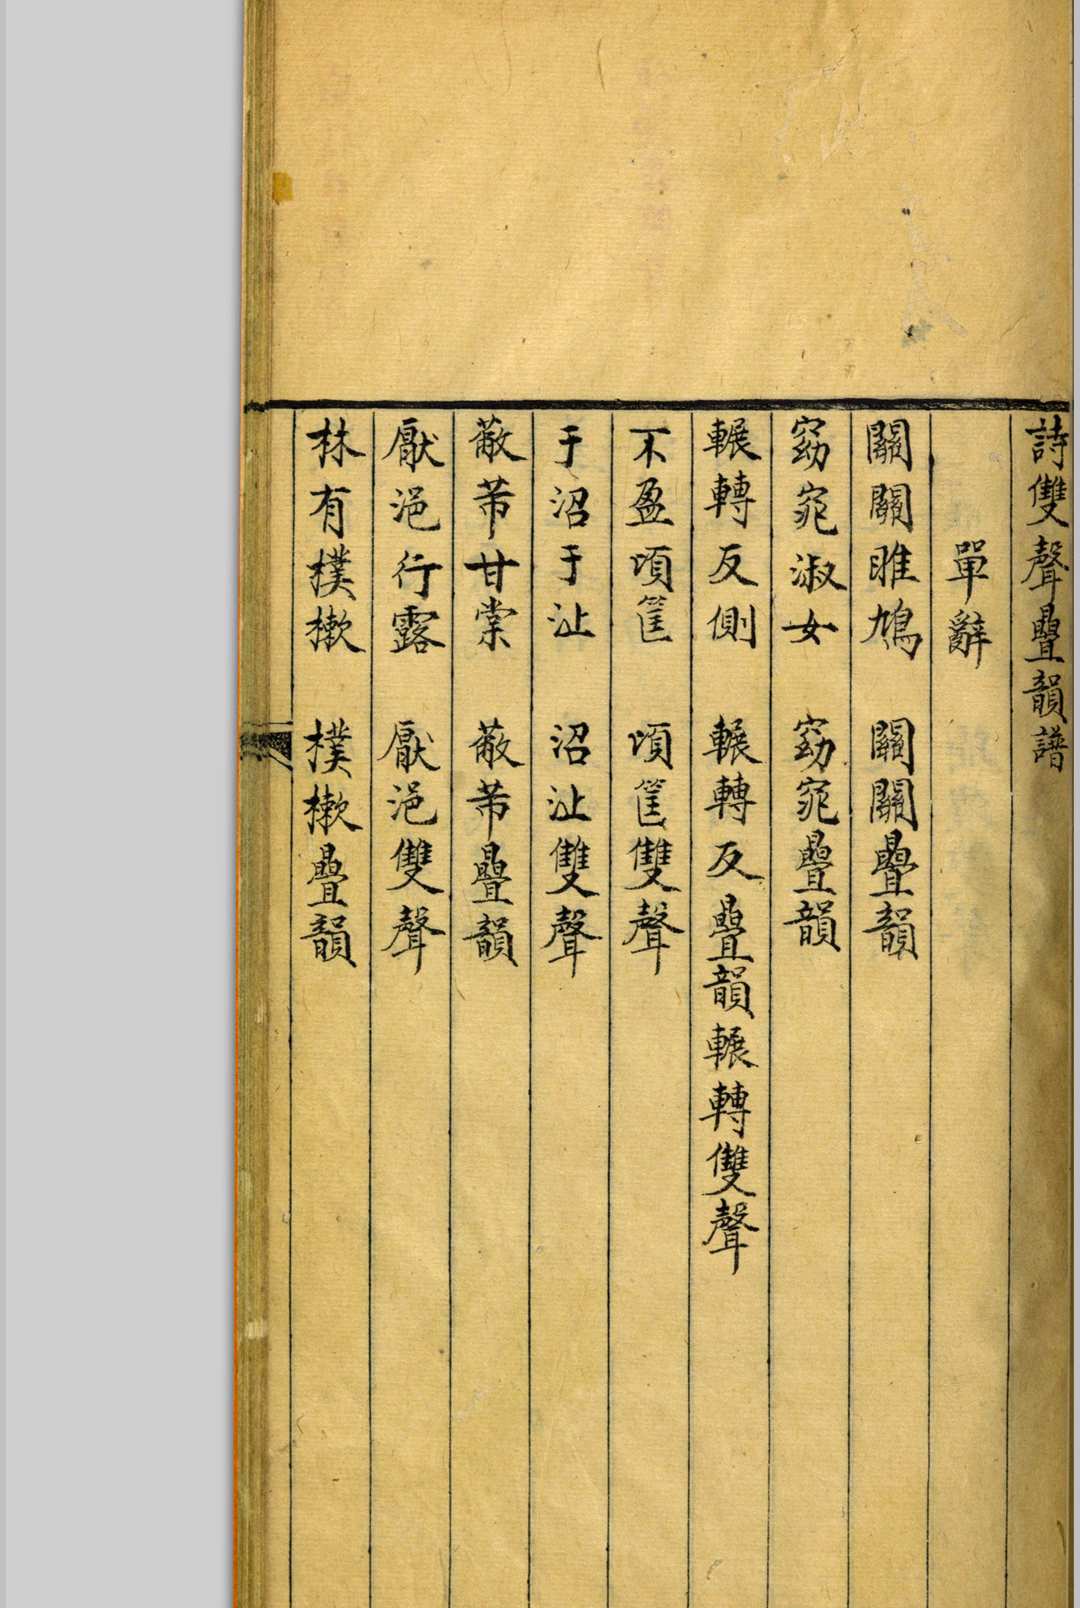 詩雙聲疊韻譜
單辭
關關雎鳩 關關疊韻
窈窕淑女 窈窕疊韻
輾轉反側 輾轉反疊韻輾轉雙聲
不盈頃筐 頃筐雙聲
于沼于沚 沼沚雙聲
蔽芾甘棠 蔽芾疊韻
厭浥行露 厭浥雙聲
林有樸樕 樸樕疊韻